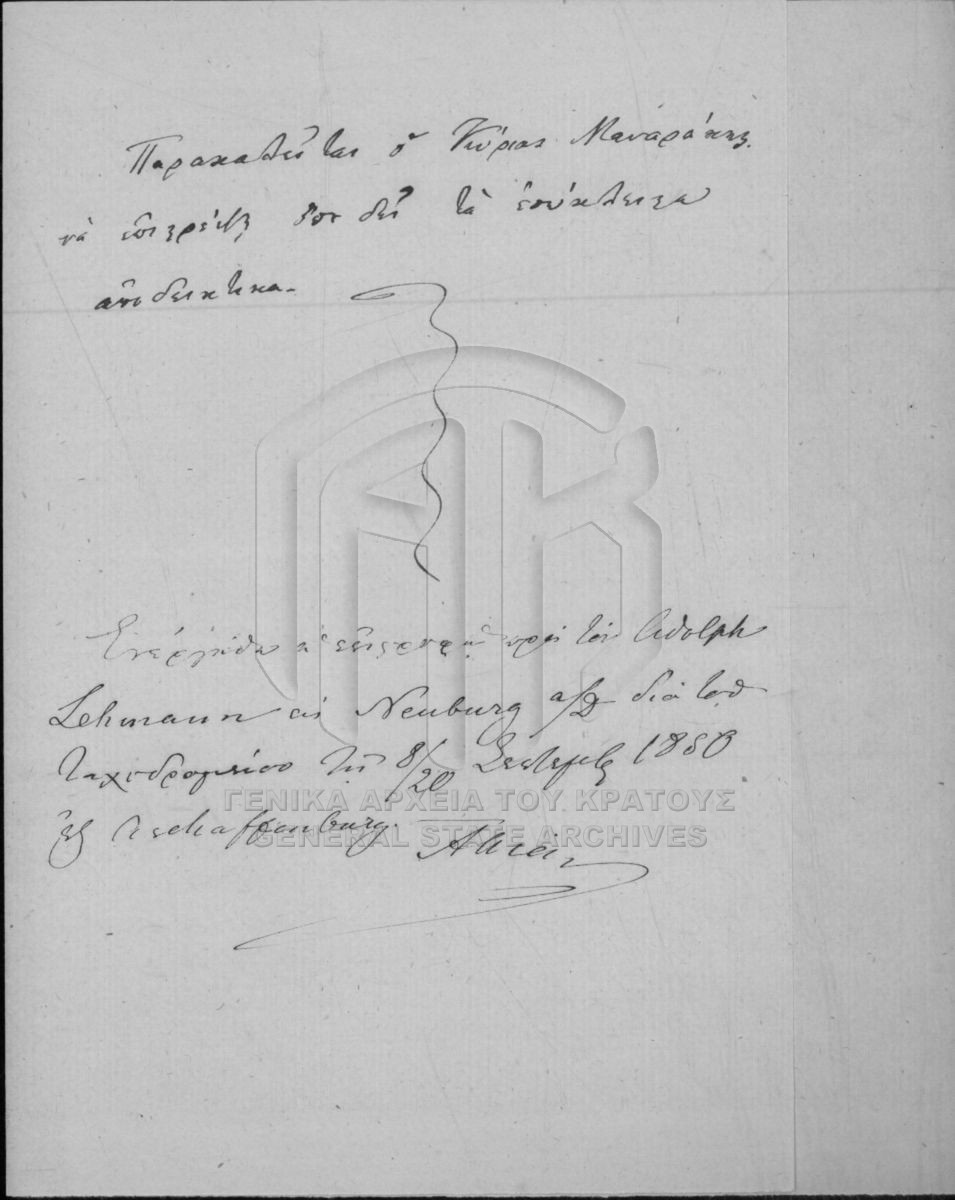 Παρακαλεῖται ὁ Κύριος Μαναράκης
νὰ ἐπιστρέψῃ ὅπου δεῖ τὰ ἐσώκλειστα
ἀποδεικτικα.
Ἐνεργήθη ἡ ἐπιστροφὴ πρὸς τὸν Adolph
Lehmann εἰς Neuburg a/D διὰ τοῦ
ταχυδρομείου τῇ 8/20 1880
ἐξ Aschaffenburg.
ΓΕΝΙΚΑ ΑΡΧΕΙΑ ΤΟΥ ΚΡΑΤΟΥΣ
GENERAL STATE ARCHIVES